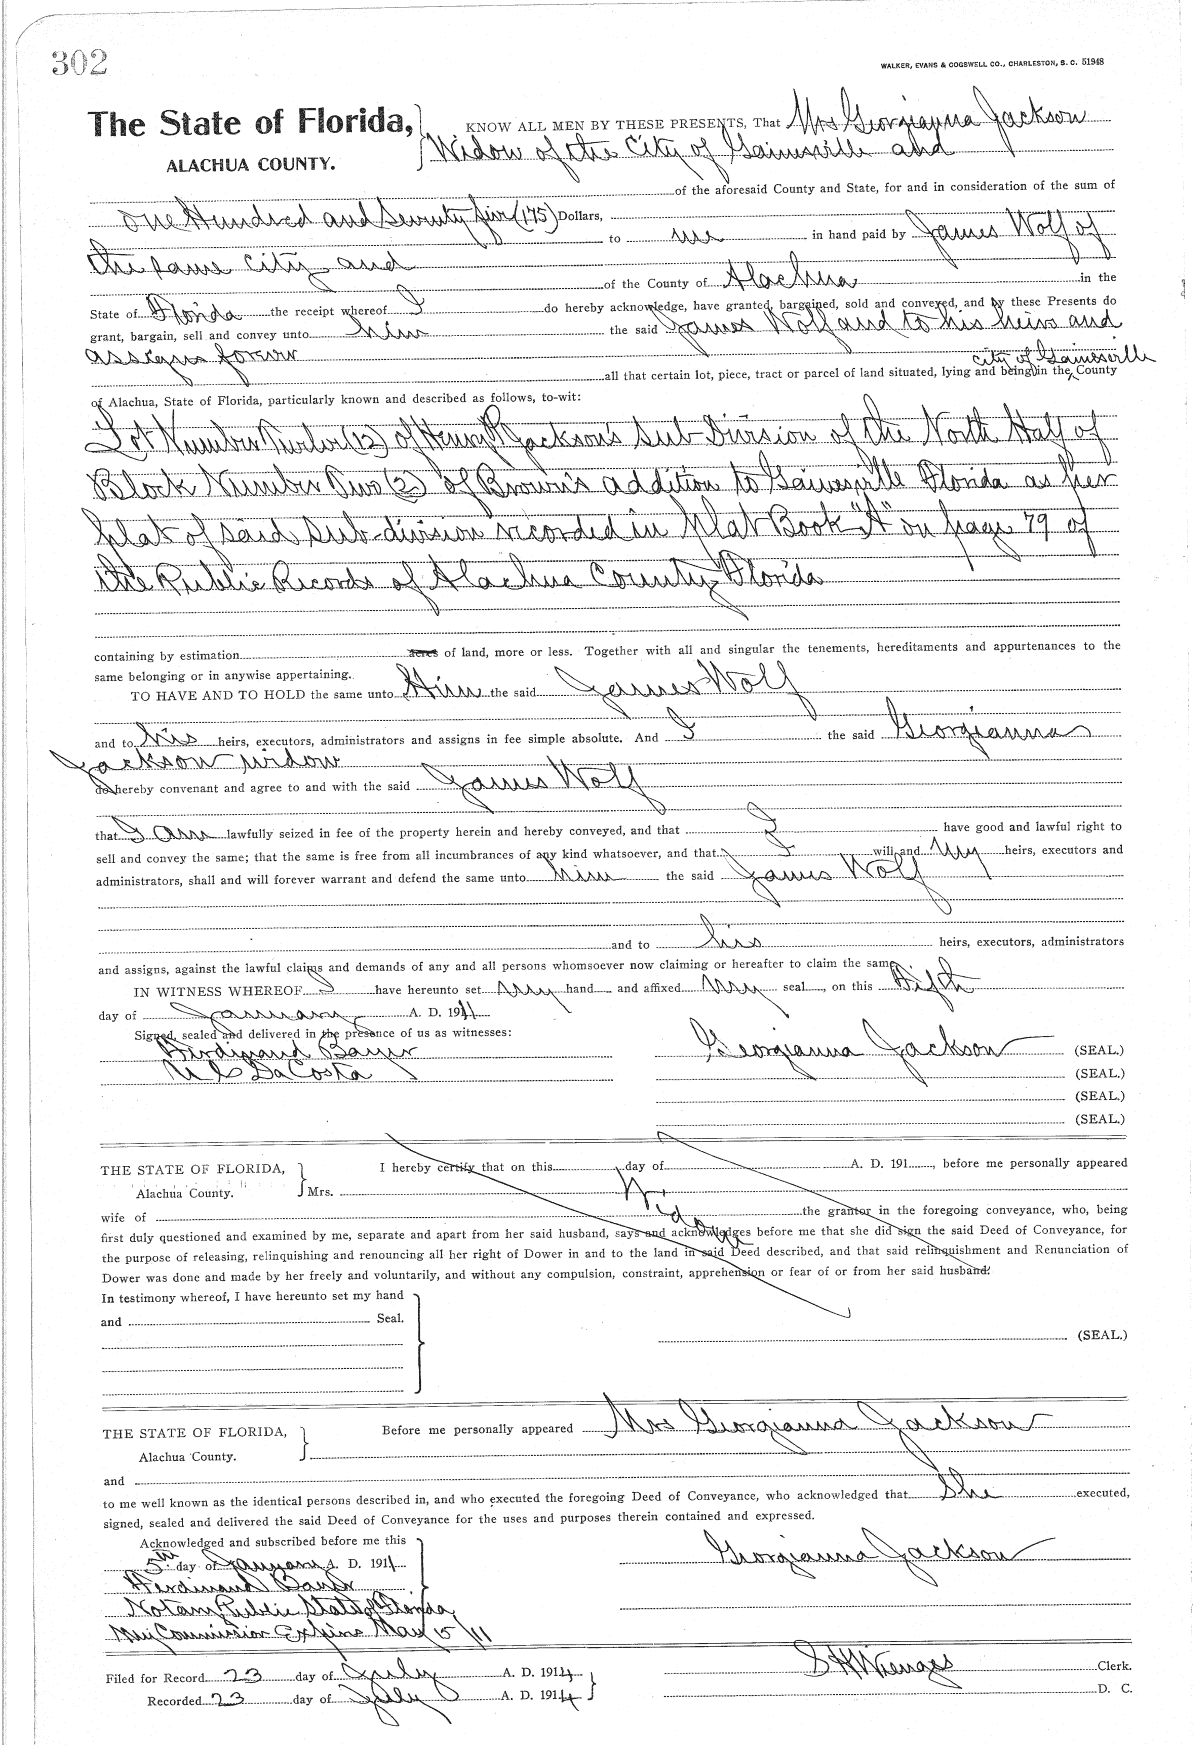 302
WALKER, EVANS & COGSWELL CO., CHARLESTON, S. C. 51948
The State of Florida, KNOW ALL MEN BY THESE PRESENTS, That Mrs Georgianna Jackson
ALACHUA COUNTY. Widow of the City of Gainesville and
of the aforesaid County and State, for and in consideration of the sum of
One Hundred and Seventy five (175) Dollars,
to me in hand paid by James Wolf of
the same city and
of the County of Alachua in the
State of Florida the receipt whereof I do hereby acknowledge, have granted, bargained, sold and conveyed, and by these Presents do
grant, bargain, sell and convey unto him the said James Wolf and to his heirs and
assigns forever
all that certain lot, piece, tract or parcel of land situated, lying and being in the city of Gainesville County
of Alachua, State of Florida, particularly known and described as follows, to-wit:
Lot Number Twelve (12) of Henry P Jackson's Sub Division of the North Half of
Block Number Two (2) of Brown's addition to Gainesville Florida as per
plat of said Sub-division recorded in Plat Book "A" on page 79 of
the Public Records of Alachua County Florida
containing by estimation acres of land, more or less. Together with all and singular the tenements, hereditaments and appurtenances to the
same belonging or in anywise appertaining.
TO HAVE AND TO HOLD the same unto Him the said James Wolf
and to his heirs, executors, administrators and assigns in fee simple absolute. And I the said Georgianna
Jackson widow
do hereby convenant and agree to and with the said James Wolf
that I am lawfully seized in fee of the property herein and hereby conveyed, and that I have good and lawful right to
sell and convey the same; that the same is free from all incumbrances of any kind whatsoever, and that I will and my heirs, executors and
administrators, shall and will forever warrant and defend the same unto him the said James Wolf
and to his heirs, executors, administrators
and assigns, against the lawful claims and demands of any and all persons whomsoever now claiming or hereafter to claim the same.
IN WITNESS WHEREOF I have hereunto set my hand and affixed my seal, on this Fifth
day of January A. D. 1911
Signed, sealed and delivered in the presence of us as witnesses:
Ferdinand Bayer Georgianna Jackson (SEAL.)
DaCosta (SEAL.)
(SEAL.)
(SEAL.)
THE STATE OF FLORIDA, I hereby certify that on this day of A. D. 191, before me personally appeared
Alachua County. Mrs.
Widow
wife of the grantor in the foregoing conveyance, who, being
first duly questioned and examined by me, separate and apart from her said husband, says and acknowledges before me that she did sign the said Deed of Conveyance, for
the purpose of releasing, relinquishing and renouncing all her right of Dower in and to the land in said Deed described, and that said relinquishment and Renunciation of
Dower was done and made by her freely and voluntarily, and without any compulsion, constraint, apprehension or fear of or from her said husband.
In testimony whereof, I have hereunto set my hand
and Seal.
(SEAL.)
THE STATE OF FLORIDA, Before me personally appeared Mrs Georgianna Jackson
Alachua County.
and
to me well known as the identical persons described in, and who executed the foregoing Deed of Conveyance, who acknowledged that She executed,
signed, sealed and delivered the said Deed of Conveyance for the uses and purposes therein contained and expressed.
Acknowledged and subscribed before me this
5th day of January A. D. 1911 Georgianna Jackson
Ferdinand Bayer
Notary Public State of Florida
My Commission Expires May 15/11
Filed for Record 23 day of July A. D. 1914 S H Wienges Clerk.
Recorded 23 day of July A. D. 1914 D. C.